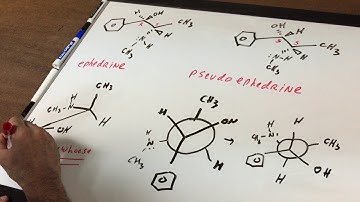 OH
H
CH₃
R
S
H
N
CH₃
ephedrine
OH
H
CH₃
S
S
H
N
CH₃
pseudoephedrine
H
CH₃
N
CH₃
H
OH
CH₃
OH
H
H
N
CH₃
H
H
H
CH₃
N
CH₃
H
H
OH